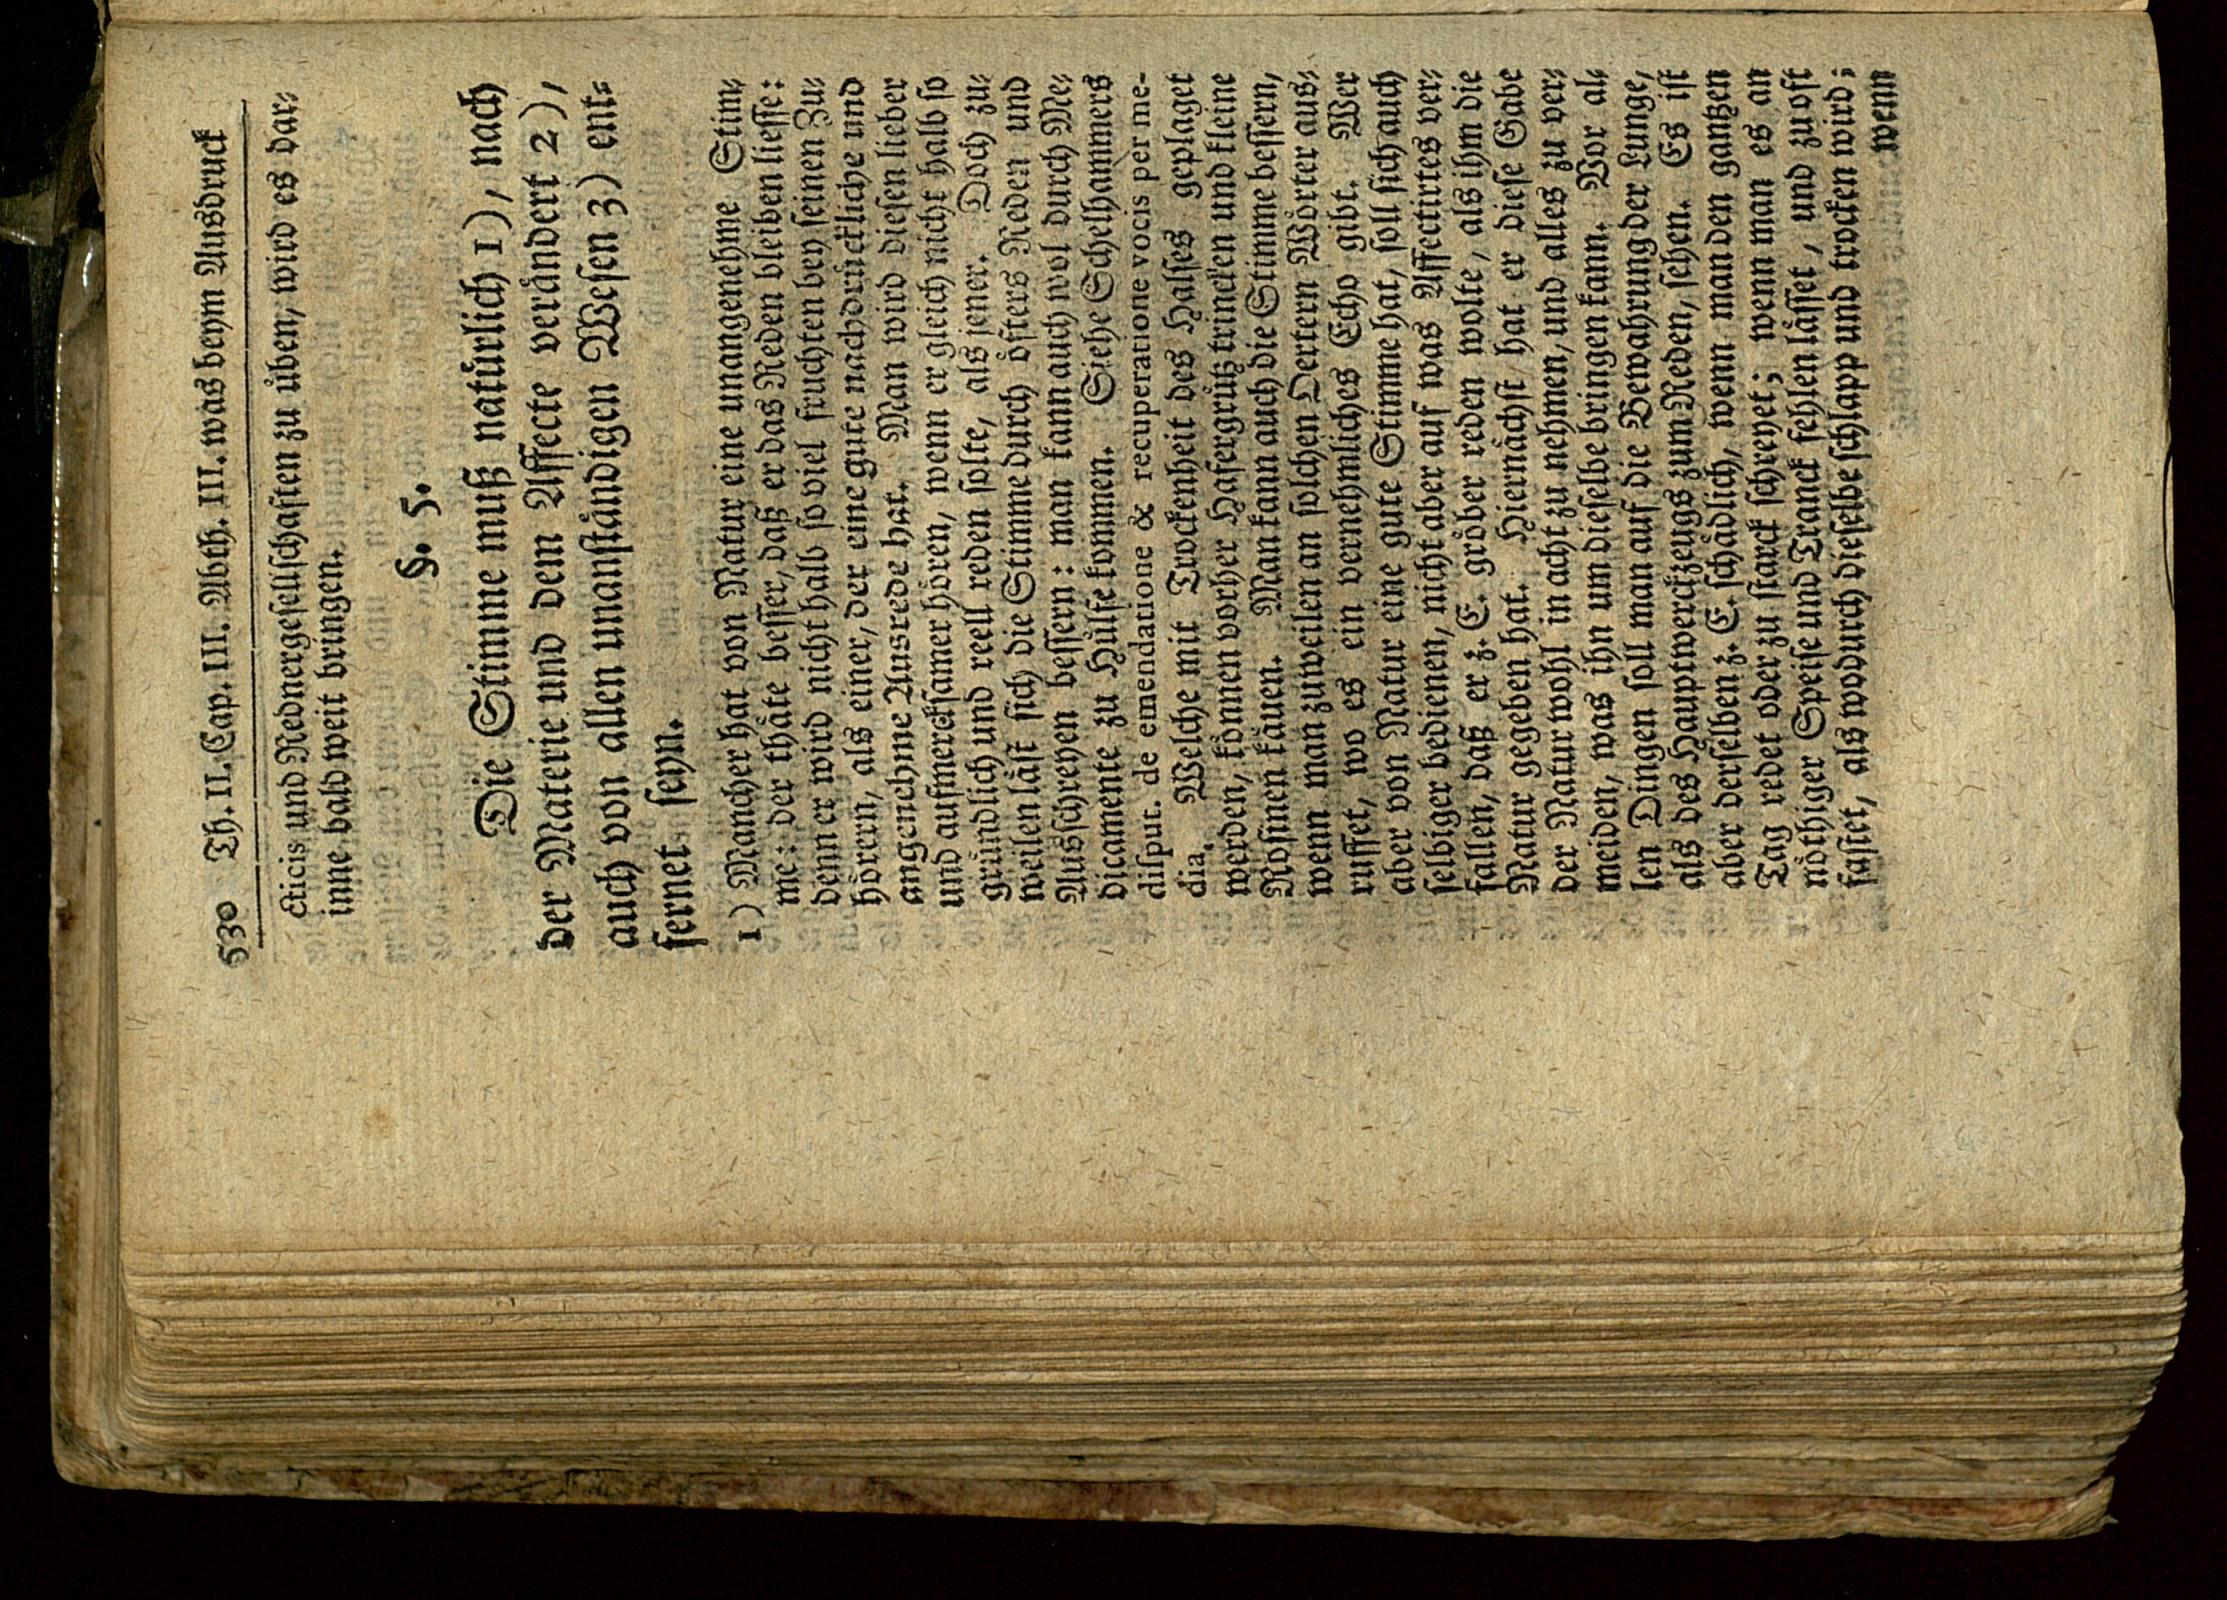 530 Th. II. Cap. III. Abth. III. was beym Ausdruck
cticis und Rednergesellschaften zu üben, wird es dar-
inne bald weit bringen.
§. 5.
Die Stimme muß natürlich 1), nach
der Materie und dem Affecte verändert 2),
auch von allen unanständigen Wesen 3) ent-
fernet seyn.
1) Mancher hat von Natur eine unangenehme Stim-
me: der thäte besser, daß er das Reden bleiben liesse:
denn er wird nicht halb so viel fruchten bey seinen Zu-
hörern, als einer, der eine gute nachdrückliche und
angenehme Ausrede hat. Man wird diesen lieber
und aufmercksamer hören, wenn er gleich nicht halb so
gründlich und reell reden solte, als jener. Doch zu-
weilen läst sich die Stimme durch öfters Reden und
Ausschreyen bessern: man kann auch wol durch Me-
dicamente zu Hülfe kommen. Siehe Schelhammers
disput. de emendatione & recuperatione vocis per me-
dia. Welche mit Trockenheit des Halses geplaget
werden, können vorher Hafergrütz trincken und kleine
Rosinen käuen. Man kann auch die Stimme bessern,
wenn man zuweilen an solchen Oertern Wörter aus-
ruffet, wo es ein vernehmliches Echo gibt. Wer
aber von Natur eine gute Stimme hat, soll sich auch
selbiger bedienen, nicht aber auf was Affectirtes ver-
fallen, daß er z. E. gröber reden wolte, als ihm die
Natur gegeben hat. Hiernächst hat er diese Gabe
der Natur wohl in acht zu nehmen, und alles zu ver-
meiden, was ihn um dieselbe bringen kann. Vor al-
len Dingen soll man auf die Bewahrung der Lunge,
als des Hauptwerckzeugs zum Reden, sehen. Es ist
aber derselben z. E. schädlich, wenn man den gantzen
Tag redet oder zu starck schreyet; wenn man es an
nöthiger Speise und Tranck fehlen lässet, und zu oft
fastet, als wodurch dieselbe schlapp und trocken wird;
wenn